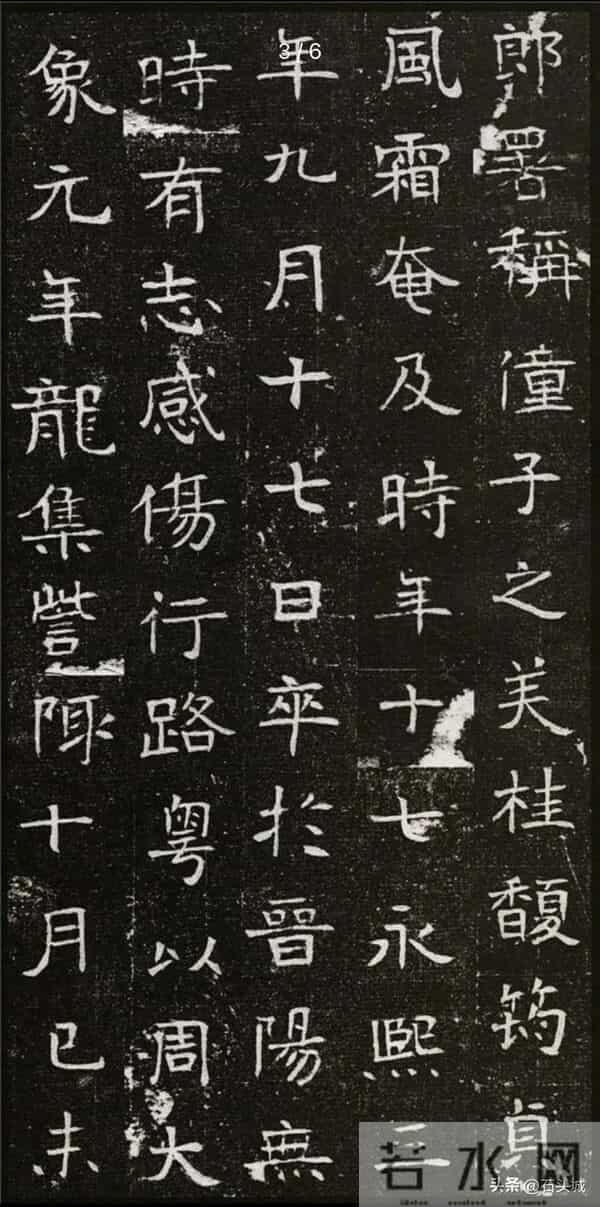 郎署稱僮子之美桂馥筠貞
風霜奄及時年十七永熙二
年九月十七日卒於晉陽無
時有志感傷行路粵以周大
象元年龍集訾陬十月已未
3/6
若水网
头条@石头城